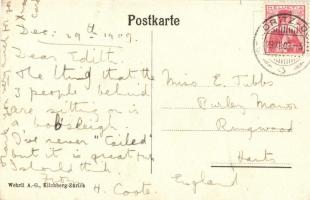 Postkarte
Dec: 29th 1909.
Dear Edith
The thing that the
3 people behind
are sitting on is
a bobsleigh
I've never "tailed"
but it is great fun
I should think
H. Coote.
Miss E. Tubbs
Burley Manor
Ringwood
Hants
England
HELVETIA
Wehrli A.-G., Kilchberg-Zürich